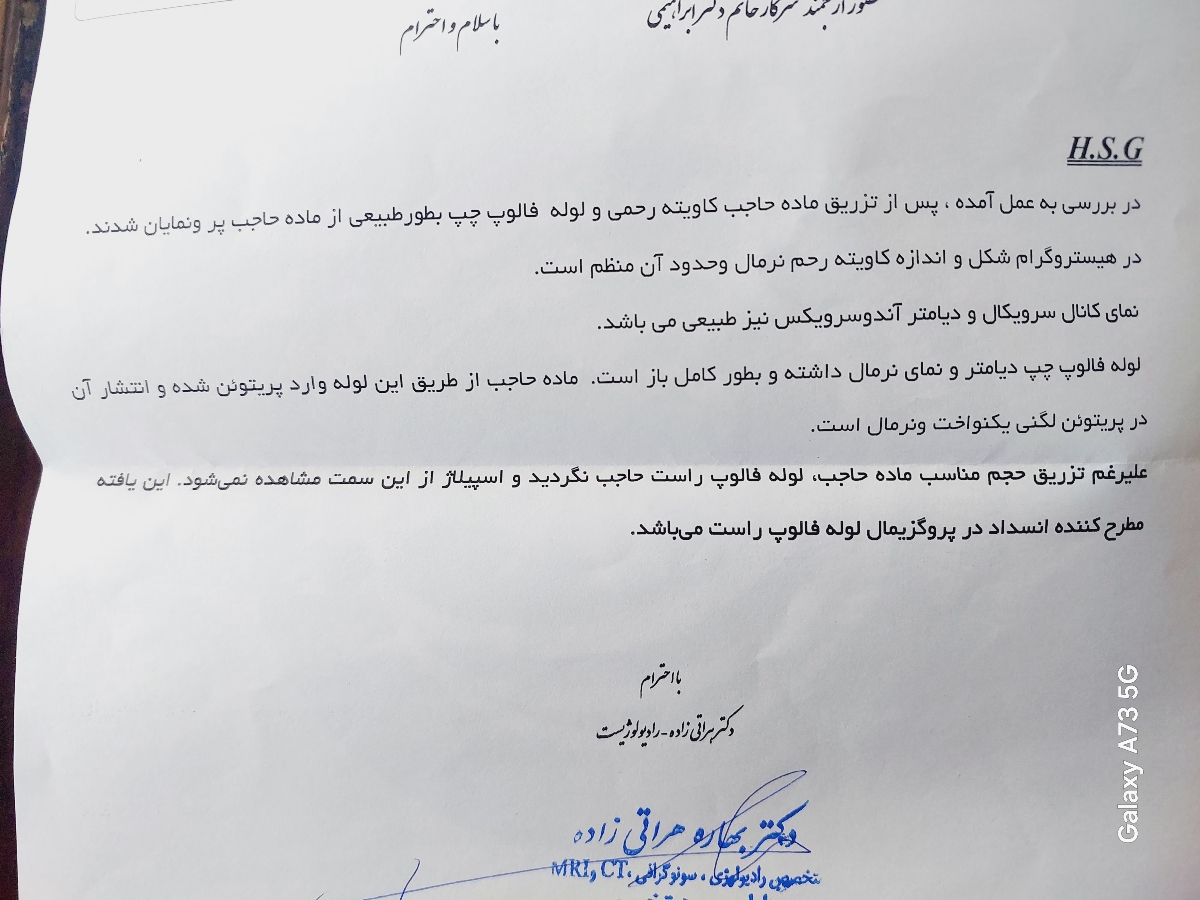 حضور ارجمند سرکار خانم دکتر ابراهیمی
با سلام و احترام
H.S.G
در بررسی به عمل آمده ، پس از تزریق ماده حاجب کاویته رحمی و لوله فالوپ چپ بطورطبیعی از ماده حاجب پر ونمایان شدند.
در هیستروگرام شکل و اندازه کاویته رحم نرمال وحدود آن منظم است.
نمای کانال سرویکال و دیامتر آندوسرویکس نیز طبیعی می باشد.
لوله فالوپ چپ دیامتر و نمای نرمال داشته و بطور کامل باز است. ماده حاجب از طریق این لوله وارد پریتوئن شده و انتشار آن
در پریتوئن لگنی یکنواخت ونرمال است.
علیرغم تزریق حجم مناسب ماده حاجب، لوله فالوپ راست حاجب نگردید و اسپیلاژ از این سمت مشاهده نمی‌شود. این یافته
مطرح کننده انسداد در پروگزیمال لوله فالوپ راست می‌باشد.
با احترام
دکتر هراتی زاده - رادیولوژیست
دکتر بهاره هراتی زاده
متخصص رادیولوژی ، سونوگرافی ،CT و MRI
Galaxy A73 5G